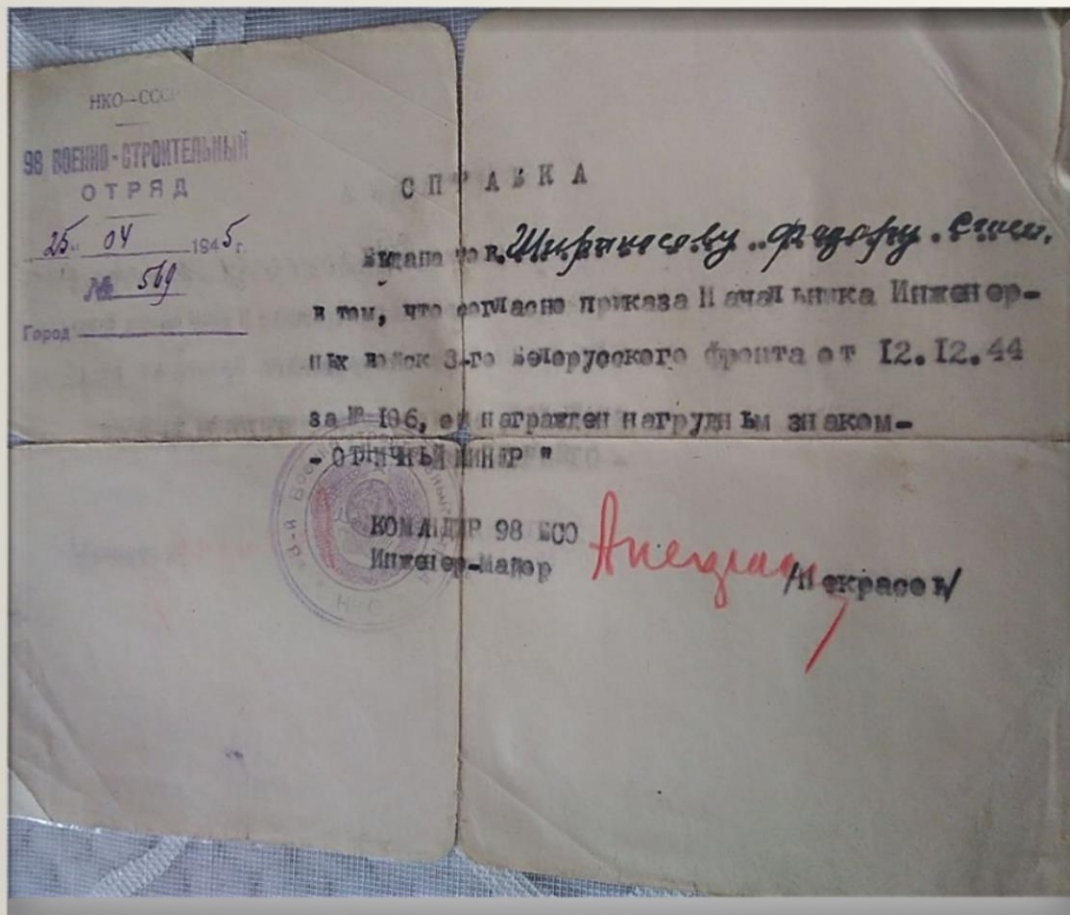 НКО-СССР
98 ВОЕННО-СТРОИТЕЛЬНЫЙ
ОТРЯД
25 04 1945 г.
№ 569
Город
СПРАВКА
Выдана тов. Федору
в том, что согласно приказа Начальника Инженер-
ных войск 3-го Белорусского фронта от 12.12.44
за № 106, он награжден нагрудным знаком-
- ОТЛИЧНЫЙ МИНЕР "
КОМАНДИР 98 ВСО
Инженер-Майор
/Некрасов/